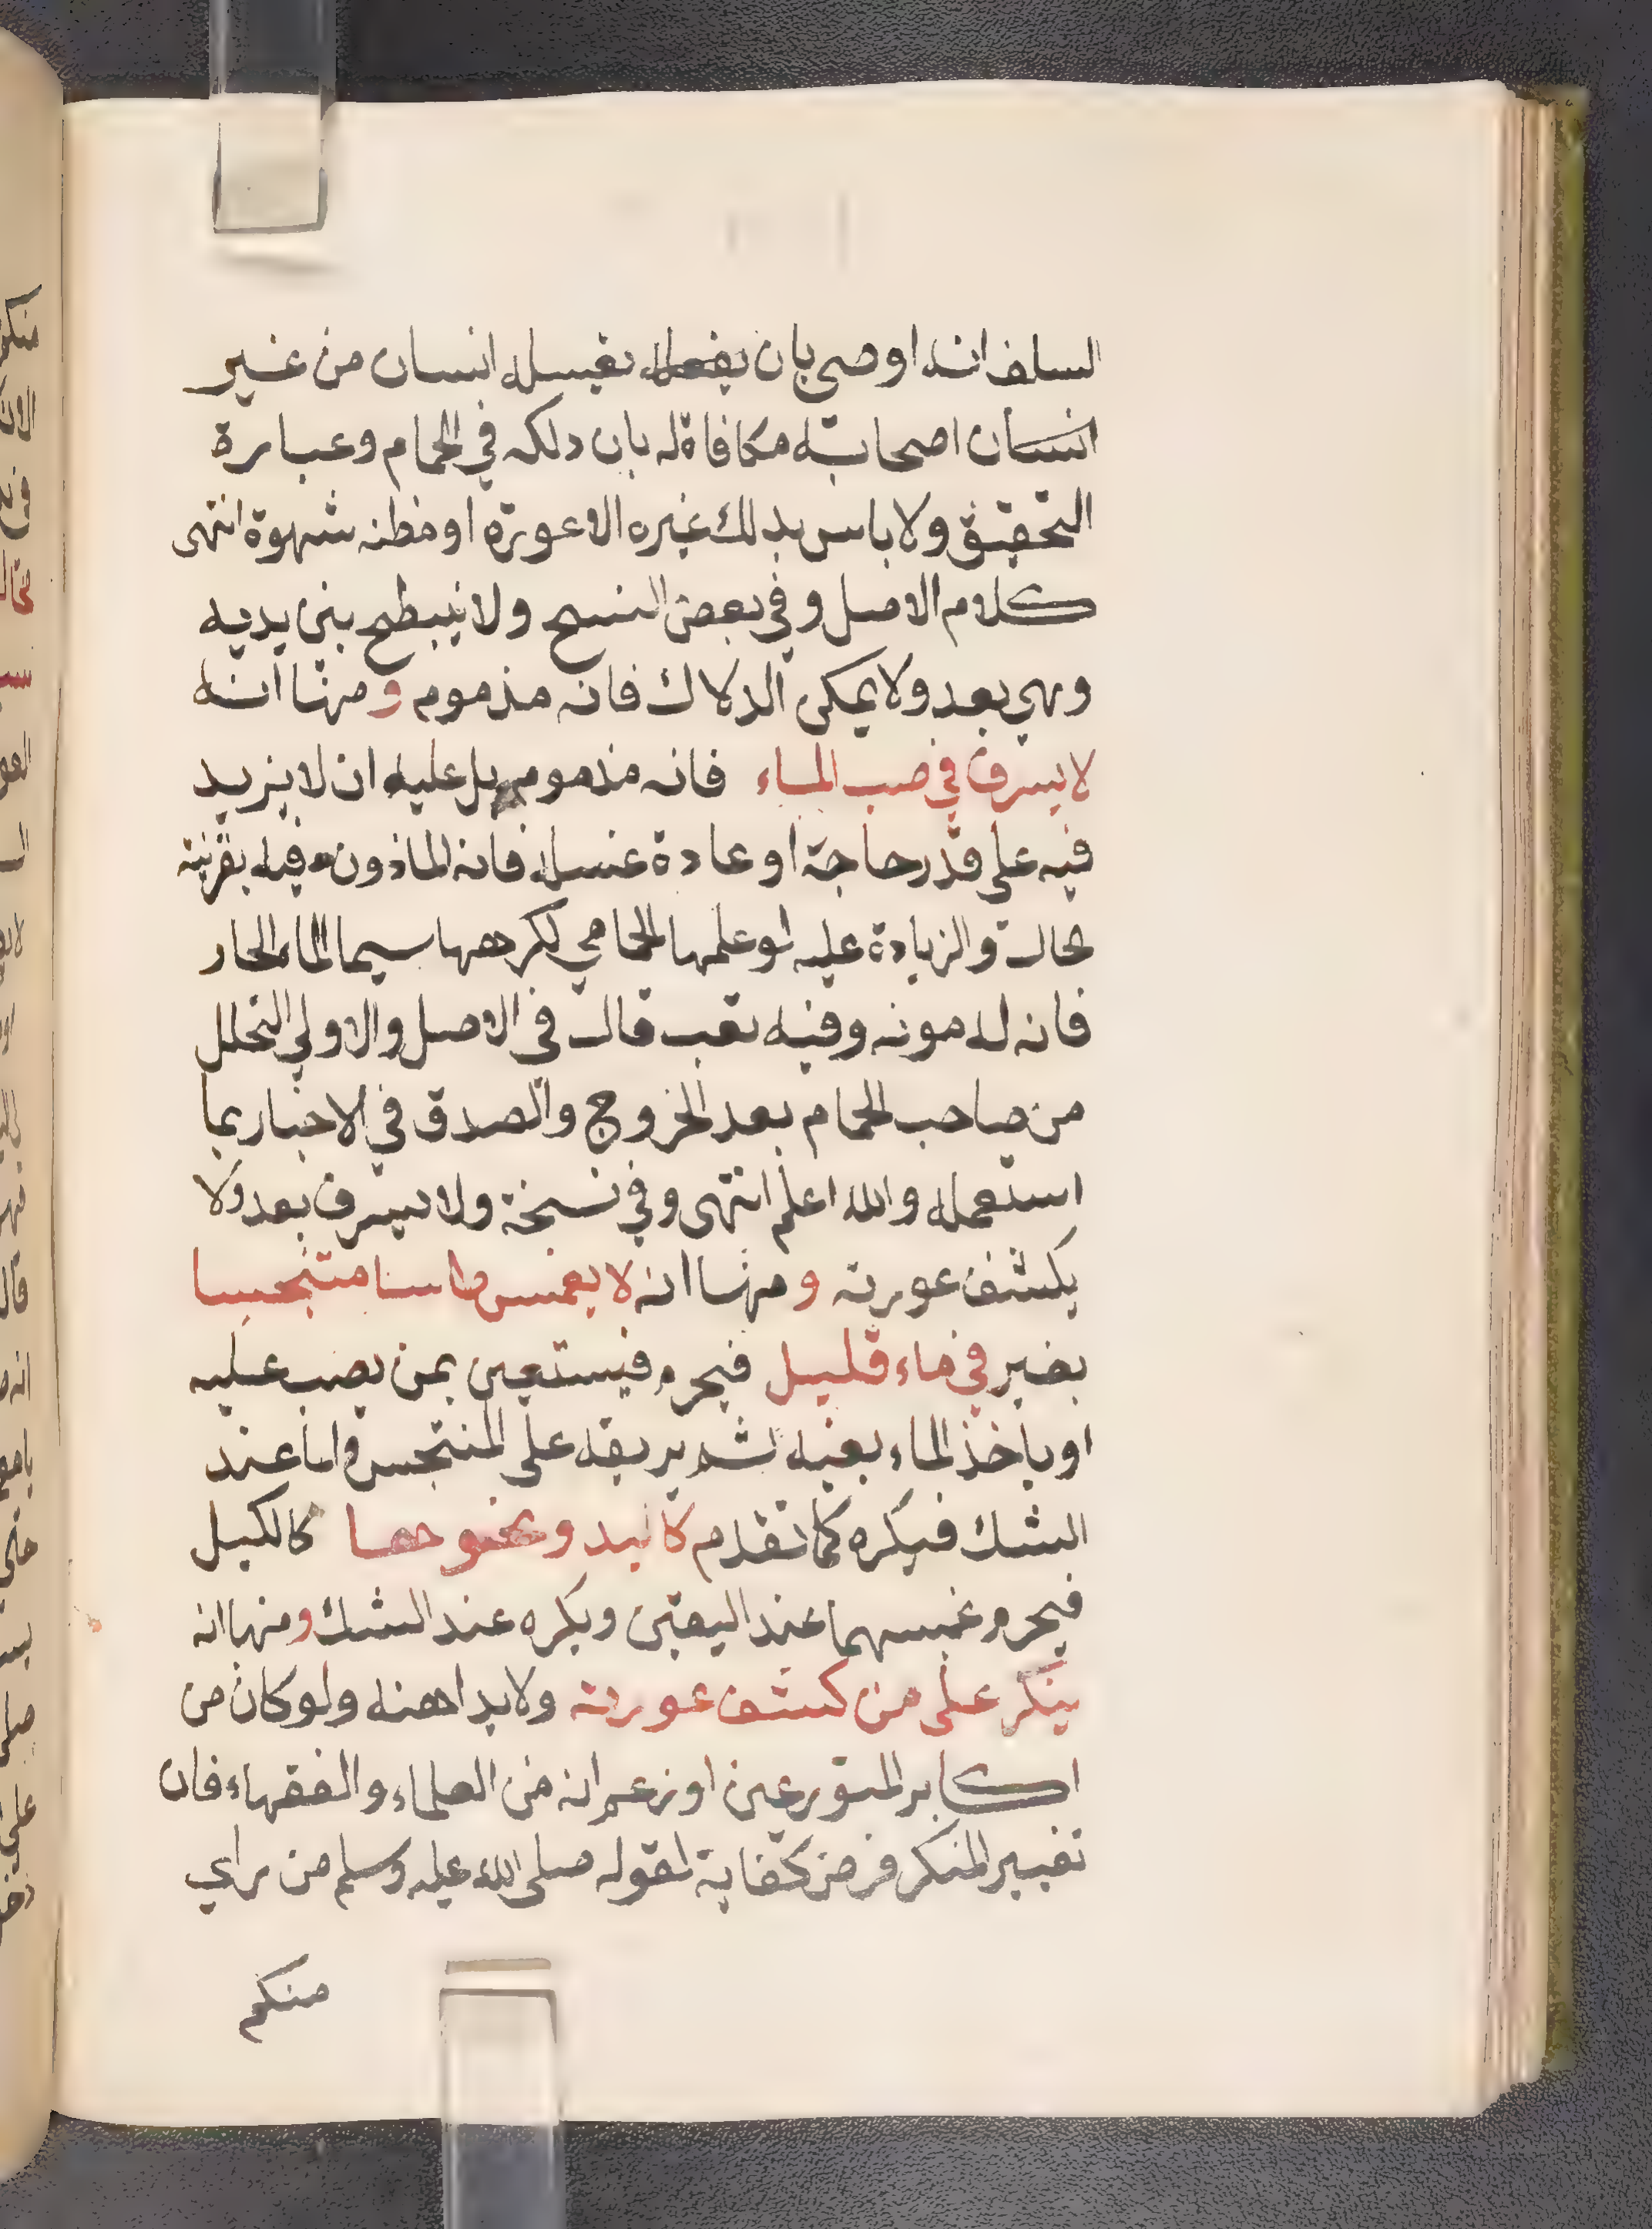 السلف انه اوصى بان يفعله بغسله انسان من غير
انسان اصحابه مكافاة له بان دلكه في الحمام وعبارة
التحقيق ولا باس بدلك غيره الا عورة او مظنه شهوة انتهى
كلام الاصل وفي بعض النسخ ولا ينبطح بين يديه
وهي بعد ولا يمكن الدلاك فانه مذموم ومنها انه
لا يسرف في صب الماء فانه مذموم بل عليه ان لا يزيد
فيه على قدر حاجة او عادة غسله فانه الماذون فيه بقرينة
الحال والزيادة عليه لو علمها الحمامي لكرهها سيما الماء الحار
فانه له مونه وفيه تعب قال في الاصل والاولى التحلل
من صاحب الحمام بعد الخروج والصدق في الاخبار بما
استعمله والله اعلم انتهى وفي نسخة ولا يسرف بعد ولا
يكشف عورته ومنها انه لا يغمس طاسا متنجسا
بضير في ماء قليل فيحرم فيستعين بمن يصب عليه
او ياخذ الماء بفيه ثم يريقه على المتنجس واما عند
الشك فيكره كما تقدم كاليد ونحوها كالكيل
فيحرم غمسهما عند اليقين ويكره عند الشك ومنها انه
ينكر على من كشف عورته ولا يداهنه ولو كان من
اكابر المتورعين او زعم انه من العلماء والفقهاء فان
تغيير المنكر فرض كفاية لقوله صلى الله عليه وسلم من راي
منكم